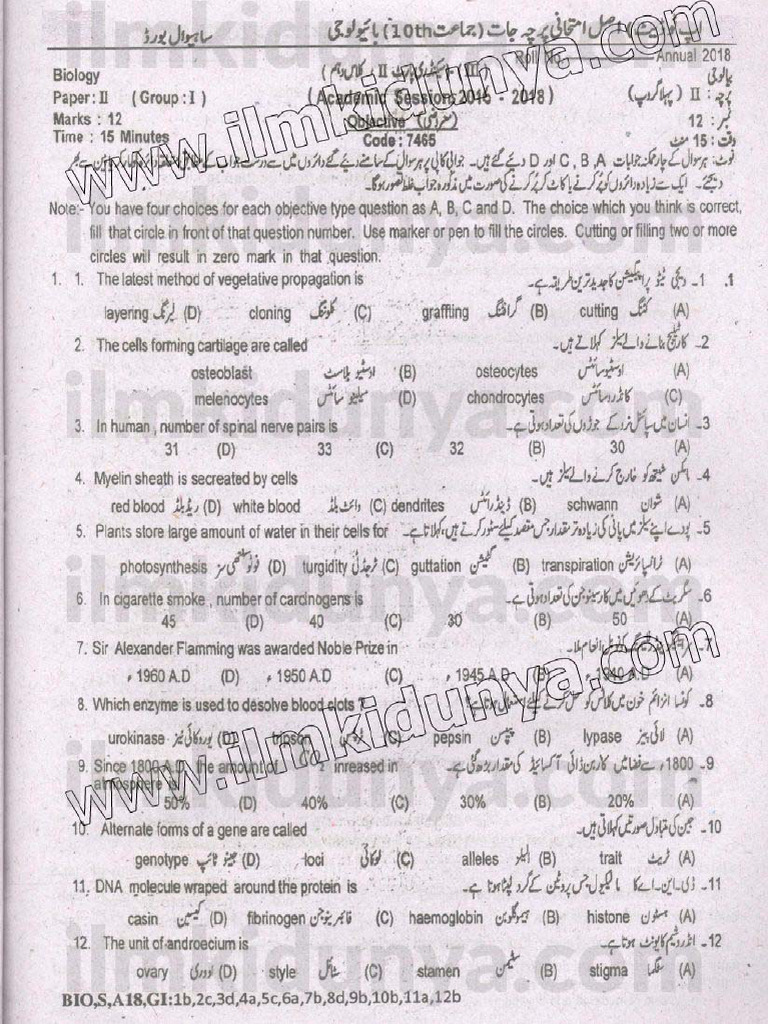 ساہیوال بورڈ
اصل امتحانی پرچہ جات (جماعت 10th) بائیولوجی
Roll No Annual 2018
Biology
بیالوجی
Paper: II ( Group: I )
(Academic Session: 2016 - 2018)
پرچہ : II (پہلا گروپ)
Marks : 12
Objective
(معروضی)
نمبر: 12
Time : 15 Minutes
Code : 7465
وقت: 15 منٹ
Note:- You have four choices for each objective type question as A, B, C and D. The choice which you think is correct,
fill that circle in front of that question number. Use marker or pen to fill the circles. Cutting or filling two or more
circles will result in zero mark in that question.
1. 1. The latest method of vegetative propagation is
1۔ ویجی ٹیٹو پراپیگیشن کا جدید ترین طریقہ ہے۔ 1.
layering لیرنگ (D) cloning کلوننگ (C) graffting گرافٹنگ (B) cutting کٹنگ (A)
2. The cells forming cartilage are called
2۔ کارٹیلیج بنانے والے سیلز کہلاتے ہیں۔
osteoblast اوسٹیو بلاسٹ (B) osteocytes اوسٹیوسائٹس (A)
melenocytes میلینو سائٹس (D) chondrocytes کانڈروسائٹس (C)
3. In human , number of spinal nerve pairs is
3۔ انسان میں سپائنل نروز کے جوڑوں کی تعداد ہوتی ہے۔
31 (D) 33 (C) 32 (B) 30 (A)
4. Myelin sheath is secreated by cells
4۔ مائیلن شیتھ کو خارج کرنے والے سیلز ہیں۔
red blood ریڈ بلڈ (D) white blood وائٹ بلڈ (C) dendrites ڈینڈرائٹس (B) schwann شوان (A)
5. Plants store large amount of water in their cells for
5۔ پودے اپنے سیلز میں پانی کی زیادہ تر مقدار جس مقصد کیلئے سٹور کرتے ہیں، کہلاتا ہے۔
photosynthesis فوٹو سنتھی سز (D) turgidity ٹرجڈٹی (C) guttation گٹیشن (B) transpiration ٹرانسپائریشن (A)
6. In cigarette smoke , number of carcinogens is
6۔ سگریٹ کے دھوئیں میں کارسینوجن کی تعداد ہوتی ہے۔
45 (D) 40 (C) 30 (B) 50 (A)
7. Sir Alexander Flamming was awarded Noble Prize in
7۔ انعام ملا۔
، 1960 A.D (D) ، 1950 A.D (C) ، 1945 A.D (B) ، 1940 A.D (A)
8. Which enzyme is used to desolve blood clots ?
8۔ کونسا انزائم خون میں کلاٹس کو حل کرنے کیلئے استعمال ہوتا ہے؟
urokinase یوروکائی نیز (D) tripson (C) pepsin پیپسن (B) lypase لائی پیز (A)
9. Since 1800 A.D. the amount of inreased in
atmosphere
9۔ 1800ء سے فضا میں کاربن ڈائی آکسائیڈ کی مقدار بڑھ گئی ہے۔
50% (D) 40% (C) 30% (B) 20% (A)
10. Alternate forms of a gene are called
10۔ جین کی متبادل صورتیں کہلاتی ہیں۔
genotype جینو ٹائپ (D) loci لوکائی (C) alleles الیلز (B) trait ٹریٹ (A)
11. DNA molecule wraped around the protein is
11۔ ڈی۔این۔اے کا مالیکیول جس پروٹین کے گرد لپٹا ہوتا ہے۔
casin کیسین (D) fibrinogen فائبرینوجن (C) haemoglobin ہیموگلوبن (B) histone ہسٹون (A)
12. The unit of androecium is
12۔ انڈروشیم کا یونٹ ہوتا ہے۔
ovary اووری (D) style سٹائل (C) stamen سٹیمن (B) stigma سٹگما (A)
BIO,S,A18,GI:1b,2c,3d,4a,5c,6a,7b,8d,9b,10b,11a,12b
www.ilmkidunya.com
www.ilmkidunya.com
ilmkidunya.com
ilmkidunya.com
ilmkidunya.com
ilmkidunya.com
ilmkidunya.com
ilmkidunya.com